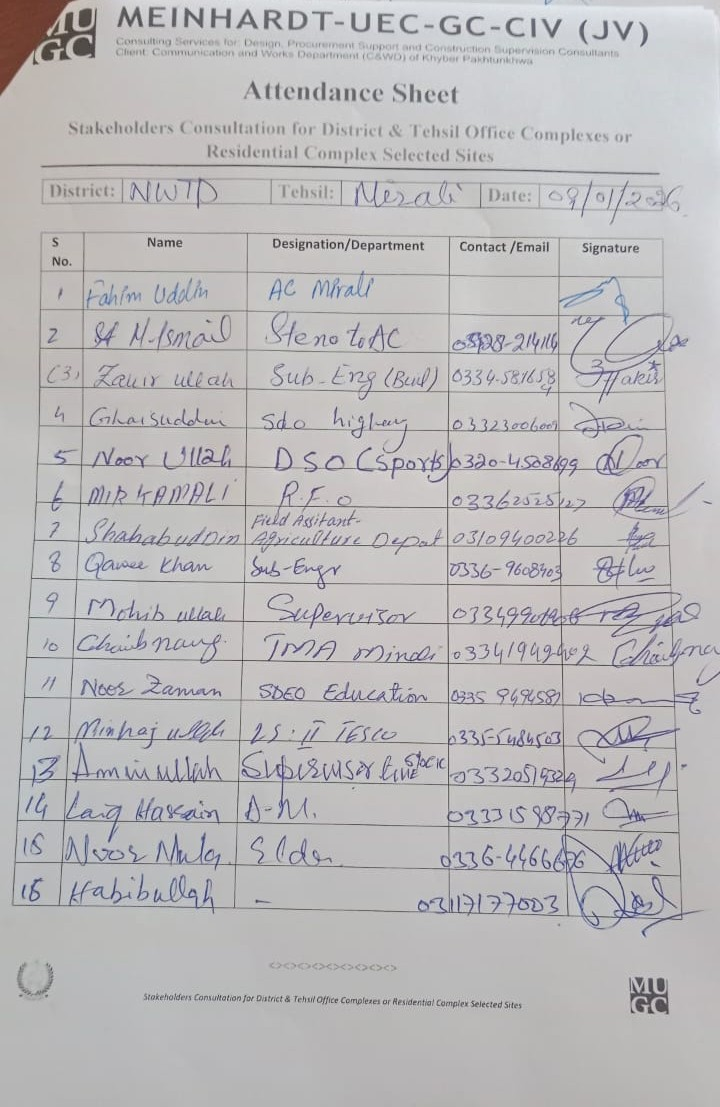 MU
GC
MEINHARDT-UEC-GC-CIV (JV)
Consulting Services for: Design, Procurement Support and Construction Supervision Consultants
Client: Communication and Works Department (C&WD) of Khyber Pakhtunkhwa
Attendance Sheet
Stakeholders Consultation for District & Tehsil Office Complexes or
Residential Complex Selected Sites
District: NWTD Tehsil: Mirali Date: 09/01/2026
S No. Name Designation/Department Contact /Email Signature
1 Fahim Uddin AC Mirali
2 M. Ismail Steno to AC
(3) Zahir ullah Sub-Eng (Buil)
4 Ghaisuddin Sdo higway 03323006009
5 Noor Ullah DSO (Sports) 0320-4508699 Noor
6 MIR KAMALI R.F.O 03362525127
7 Shahabuddin Field Assitant- Agriculture Depat 03109400226
8 Qavee Khan Sub-Engr 0336-9608403
9 Mohib ullah Supervisor
10 TMA 03341949402
11 Noor Zaman SDEO Education 0335 9494587
12 Minhaj ullah TESCO 03355484503
13 Aminullah Stock 03320519324
14 Laiq Hassain A-M. 03331598771
15 Noor Elder 0336-4466676
15 Habibullah - 03117177003
Stakeholders Consultation for District & Tehsil Office Complexes or Residential Complex Selected Sites
MU
GC